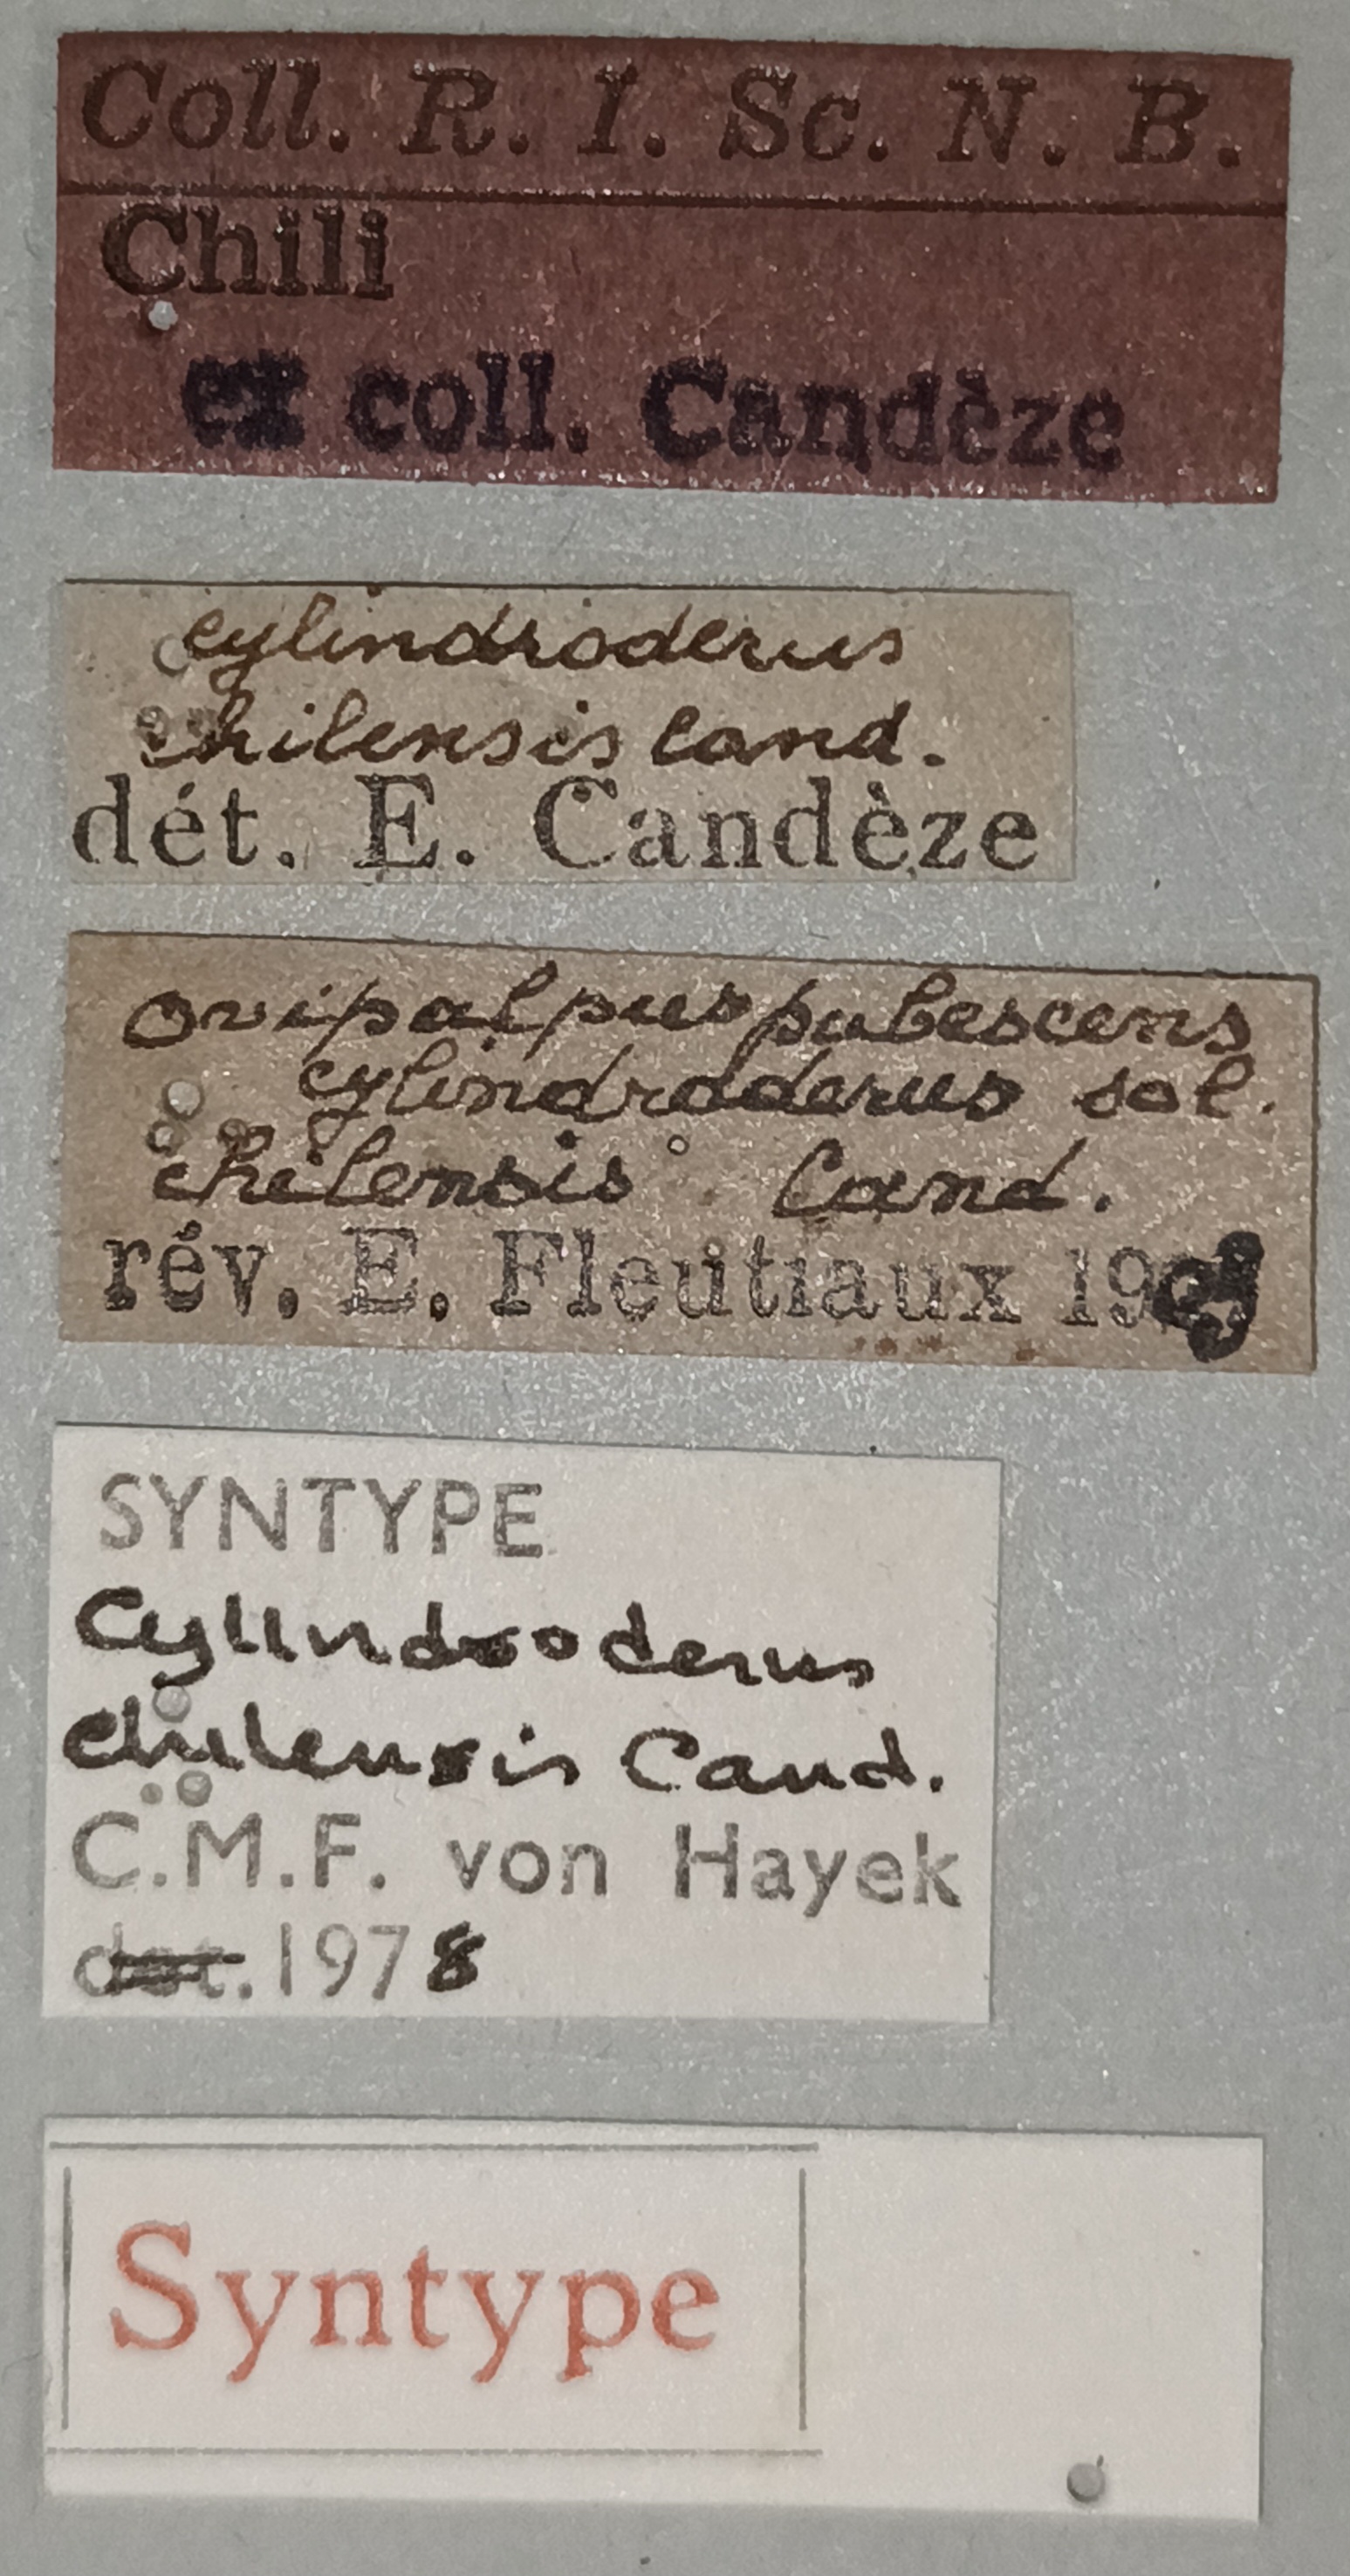 Coll. R. I. Sc. N. B.
Chili
ex coll. Candèze
cylindroderus
chilensis Cand.
dét. E. Candèze
ovipalpus pubescens
cylindroderus sol.
chilensis Cand.
rév. E. Fleutiaux
SYNTYPE
Cylindroderus
chilensis Cand.
C.M.F. von Hayek
det. 1978
Syntype